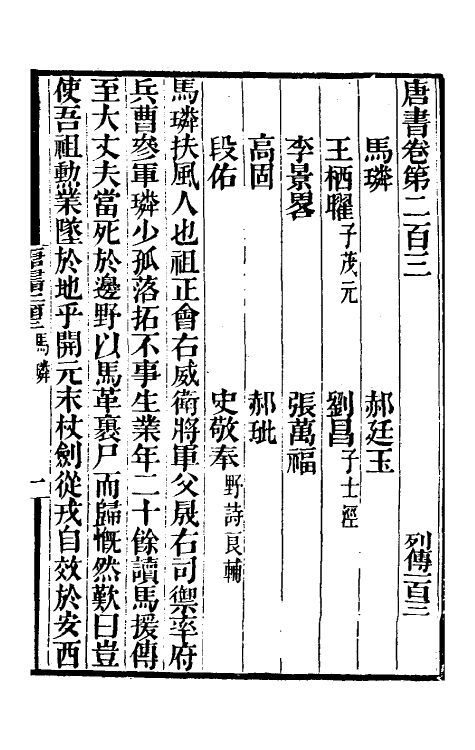 唐書卷第二百三 列傳一百三
馬璘 郝廷玉
王栖曜子茂元 劉昌子士涇
李景畧 張萬福
高固 郝玼
段佑 史敬奉野詩良輔
馬璘扶風人也祖正會右威衛將軍父晟右司禦率府
兵曹參軍璘少孤落拓不事生業年二十餘讀馬援傳
至大丈夫當死於邊野以馬革裹尸而歸慨然歎曰豈
使吾祖勲業墜於地乎開元末杖劍從戎自效於安西
唐書二百三 馬璘 一